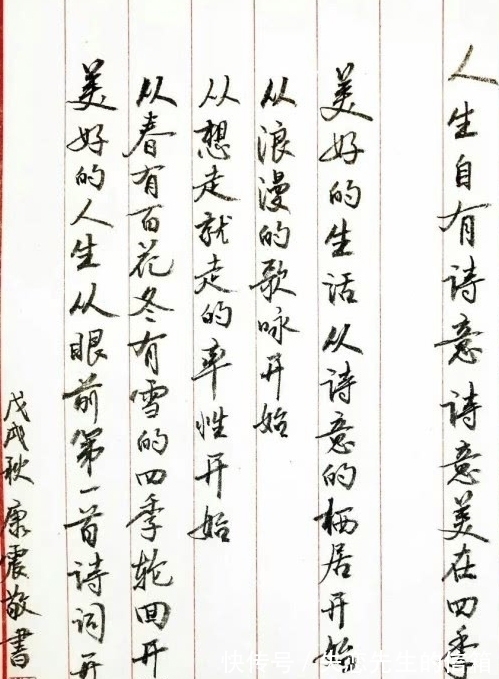 人生自有诗意诗意美在四季
美好的生活从诗意的栖居开始
从浪漫的歌咏开始
从想走就走的率性开始
从春有百花冬有雪的四季轮回开
美好的人生从眼前第一首诗词开
戊戌秋 康震敬书
快传号